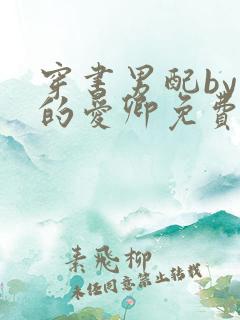 穿书男配by
的爱卿免费
素飛柳
未经同意禁止转载